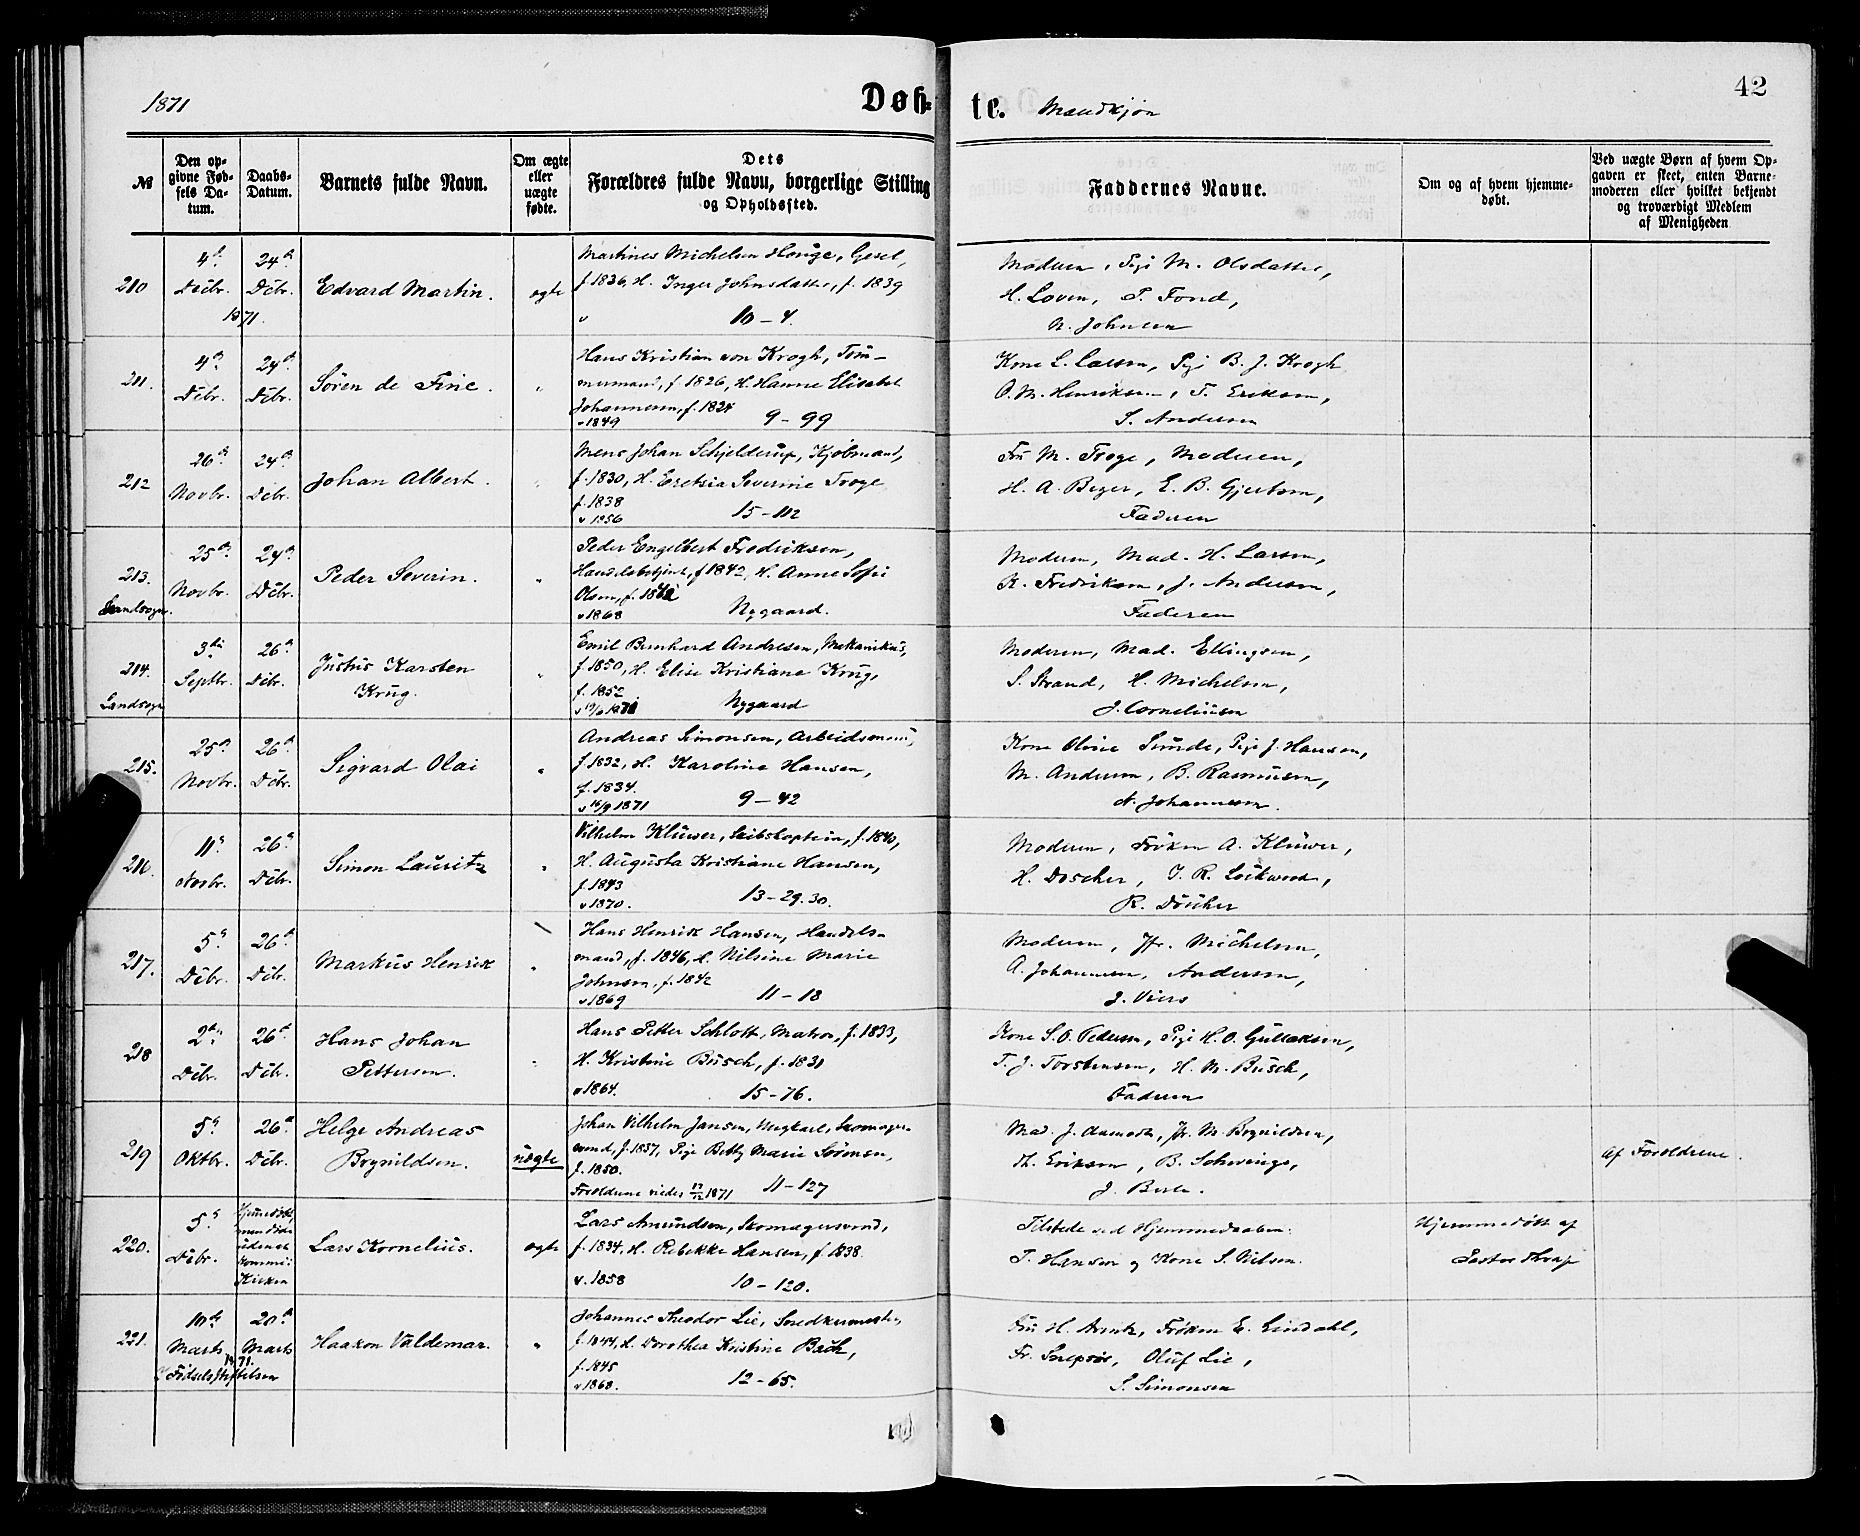 1871
Døb-
te. Mandkjøn
42
№
Den op-
givne Fød-
sels Da-
tum.
Daabs-
Datum.
Barnets fulde Navn.
Om ægte
eller
uægte
fødte.
Dets
Forældres fulde Navn, borgerlige Stilling
og Opholdssted.
Faddernes Navne.
Om og af hvem hjemme-
døbt.
Ved uægte Børn af hvem Op-
gaven er skeet, enten Barne-
moderen eller hvilket bekjendt
og troværdigt Medlem
af Menigheden
210
4d
Dcbr.
24d
Dcbr.
1871.
Edvard Martin.
ægte
Martines Michelsen Hauge, Gesel,
f 1836, H. Inger Johnsdatter, f. 1839
v 10-4.
Moderen, Pige M. Olsdatter,
H. Loven, P. Fond,
N. Johnsen
211.
4d
Dcbr.
24d
Dcbr.
Søren de Fine.
"
Hans Kristian von Krogh, Töm-
mermand, f 1826, H. Hanne Elisabet
Johannesen, f. 1824
v 1849 9-99
Kone L. Larsen, Pige B. J. Krogh
O. M. Henriksen, T. Eriksen,
S. Andersen
212
26d
Novbr.
24d
Dcbr.
Johan Albert.
"
Mens Johan Schjelderup, Kjøbmand,
f. 1830, H. Severine Troye
f. 1838
v 1856 15-112
Fru M. Troye, Moderen,
H. A. Beyer, E. B. Gjertsen,
Faderen
213.
Landsogn.
25d
Novbr.
24d
Dcbr.
Peder Severin.
"
Peder Engelbert Fredriksen,
Handelsbetjent, f 1842, H. Anne Sofie
Olsen, f. 1842
v 1868 Nygaard.
Moderen, Mad. H. Larsen,
K. Fredriksen, J. Andersen,
Faderen
214.
Landsogn
3die
Septbr.
26d
Dcbr.
Justus Karsten
Krug.
"
Emil Bernhard Andresen, Mekanikus,
f. 1850, H. Elise Kristiane Krug,
f. 1852
v 19/6 1871 Nygaard
Moderen, Mad. Ellingsen,
S. Strand, H. Michelsen,
J. Corneliusen
215.
25d
Novbr.
26d
Dcbr.
Sigvard Olai
"
Andreas Simonsen, Arbeidsmand,
f. 1832, H. Karoline Hansen,
f. 1834.
v 16/9 1871 9-42
Kone Oline Sunde, Pige J. Hansen,
M. Andersen, B. Rasmusen,
N. Johannesen.
216.
11d
Novbr.
26d
Dcbr.
Simon Lauritz
"
Vilhelm Klüwer, Skibskaptein, f. 1840,
H. Augusta Kristiane Hansen,
f. 1843
v 1870. 13-29.30.
Moderen, Frøken A. Klüwer,
H. Döscher, J. R. Lockwood,
R. Döscher
217.
5d
Dcbr.
26d
Dcbr.
Markus Henrik
"
Hans Henrik Hansen, Handels-
mand, f. 1846, H. Nilsine Marie
Johnsen, f. 1842
v 1869 11-18
Moderen, Jfr. Michelsen,
A. Johannesen, Andersen,
J. Viers
218
2den
Dcbr.
26d
Dcbr.
Hans Johan
Pettersen.
"
Hans Petter Schlott, Matros, f. 1833,
H. Kristine Büsch, f. 1831
v 1864. 15-76.
Kone S. O. Pedersen, Pige H. O. Gullaksen,
T. J. Torstensen, H. M. Büsch,
Faderen
219
5d
Oktbr.
26d
Dcbr.
Helge Andreas
Brynildsen.
uægte
Johan Vilhelm Jansen, Ungkarl, Skomager-
svend, f. 1837, Pige Betty Marie Sörensen,
f. 1850.
Forældrene viedes 17/12 1871 11-127
Mad. J. Aamodt, Jfr. M. Brynildsen,
Th. Eriksen, B. Schwings,
J. Berle.
af Forældrene.
220.
5d
Dcbr.
Hjemmedöbt,
men döde
uden at
komme i
Kirken
Lars Kornelius.
ægte
Lars Amundsen, Skomagersvend,
f. 1834, H. Rebekke Hansen, f. 1838.
v. 1858 10-120.
Tilstede ved Hjemmedaaben:
T. Hansen og Kone S. Nilsen.
Hjemmedöbt af
Pastor Thrap
221.
10de
Marts
20d
Marts
1871.
i Födselsstiftelsen
Haakon Valdemar.
"
Johannes Theodor Lie, Snedkermester,
f. 1844, H. Dorothea Kristine Bach,
f. 1845
v 1868. 12-65.
Fru H. Arntz, Frøken E. Lindahl,
Fr. Snepsör, Oluf Lie,
S. Simonsen